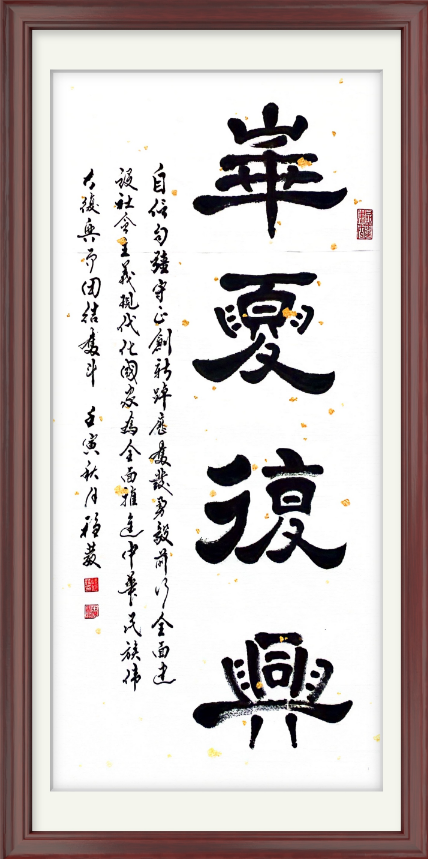 華夏復興
自信自強守正創新踔厲奮發勇毅前行全面建
設社會主義現代化國家為全面推進中華民族偉
大復興而團結奮斗 壬寅秋月